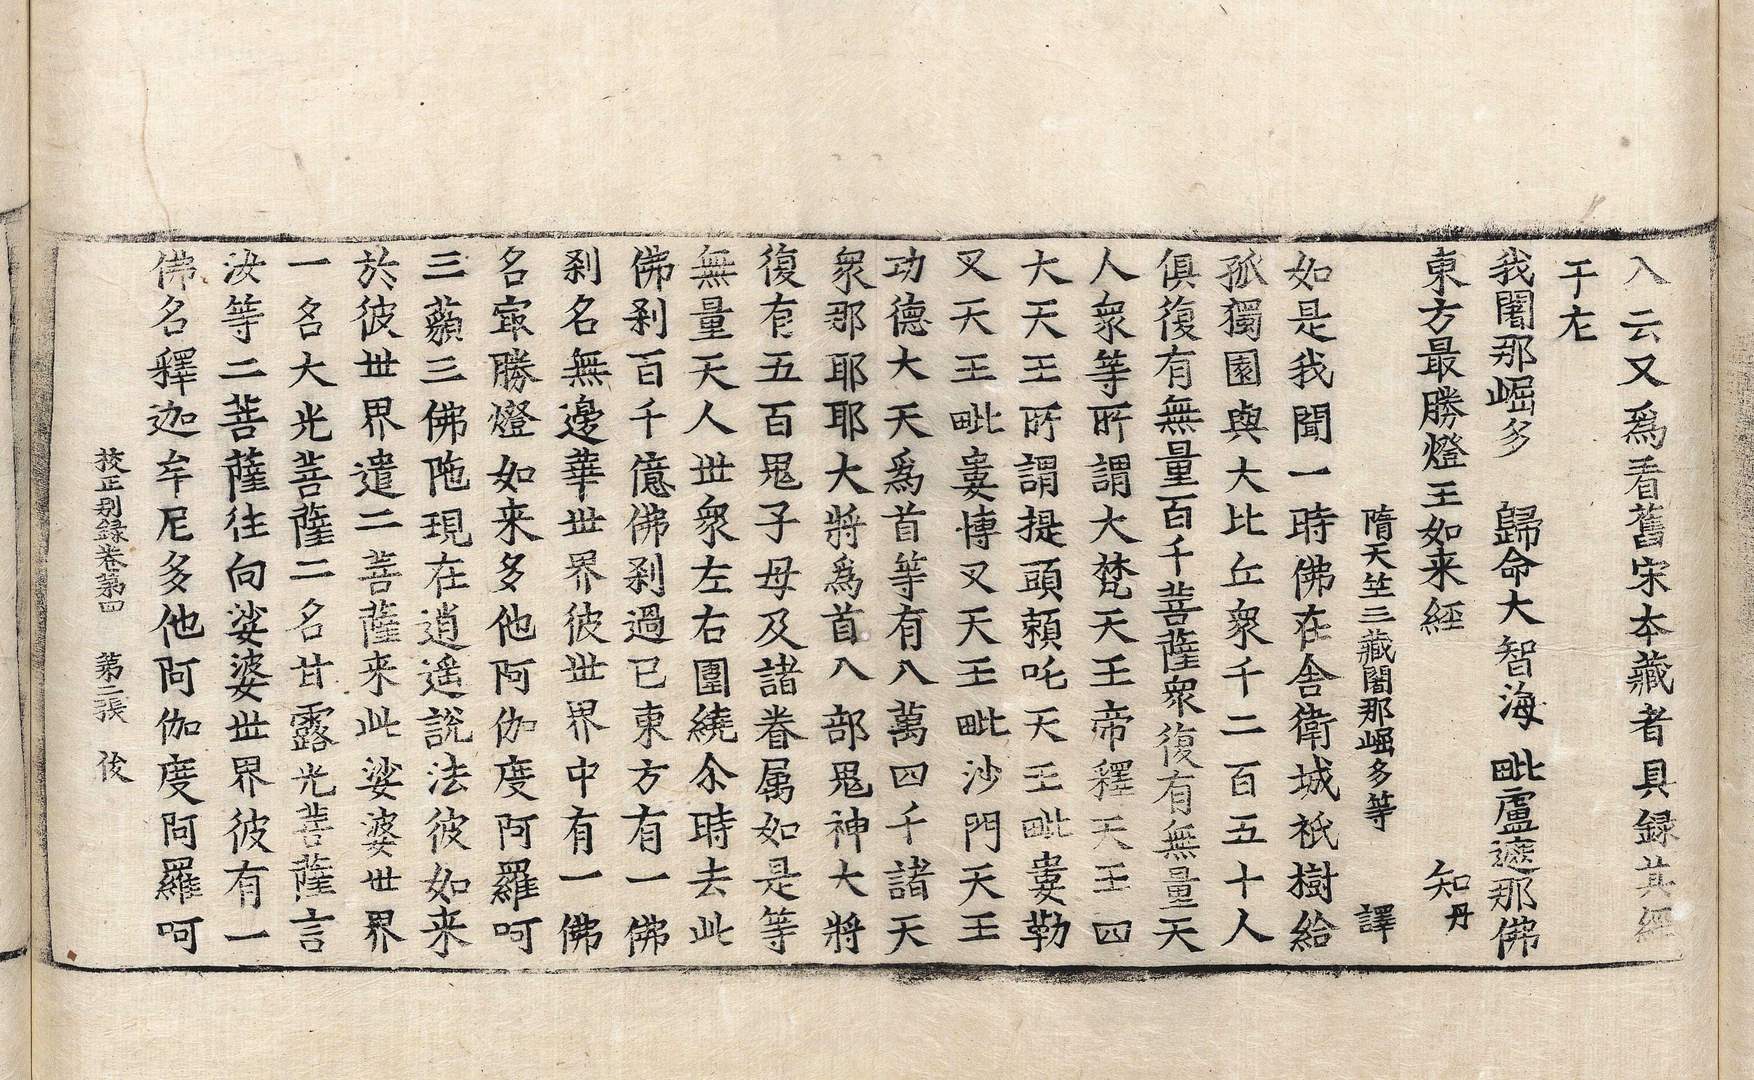 入云又爲看舊宋本藏者具録其經
于左
我闍那崛多　歸命大智海毗盧遮那佛
東方最勝燈王如来經　知丹
隋天竺三藏闍那崛多等　譯
如是我聞一時佛在舍衛城祇樹給
孤獨園與大比丘衆千二百五十人
俱復有無量百千菩薩衆復有無量天
人衆等所謂大梵天王帝釋天王四
大天王所謂提頭頼吒天王毗婁勒
叉天王毗婁博叉天王毗沙門天王
功德大天爲首等有八萬四千諸天
衆那耶耶大將爲首八部鬼神大將
復有五百鬼子母及諸眷属如是等
無量天人世衆左右圍繞尒時去此
佛刹百千億佛刹過已東方有一佛
刹名無邊華世界彼世界中有一佛
名㝡勝燈如来多他阿伽度阿羅呵
三藐三佛陁現在逍遥說法彼如来
於彼世界遣二菩薩来此娑婆世界
一名大光菩薩二名甘露光菩薩言
汝等二菩薩往向娑婆世界彼有一
佛名釋迦牟尼多他阿伽度阿羅呵
挍正別録卷第四　第二張　俊